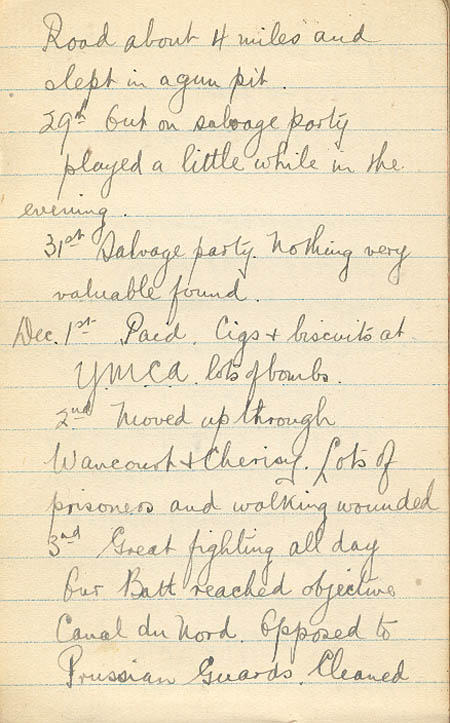 Road about 4 miles and
slept in a gun pit.
29th Out on salvage party
played a little while in the
evening.
31st Salvage party. Nothing very
valuable found.
Dec. 1st Paid. Cigs + biscuits at
Y.M.C.A. lots of bombs.
2nd Moved up through
Wancourt + Cherisy. Lots of
prisoners and walking wounded
3rd Great fighting all day
Our Batt reached objective
Canal du Nord. Opposed to
Prussian Guards. Cleaned